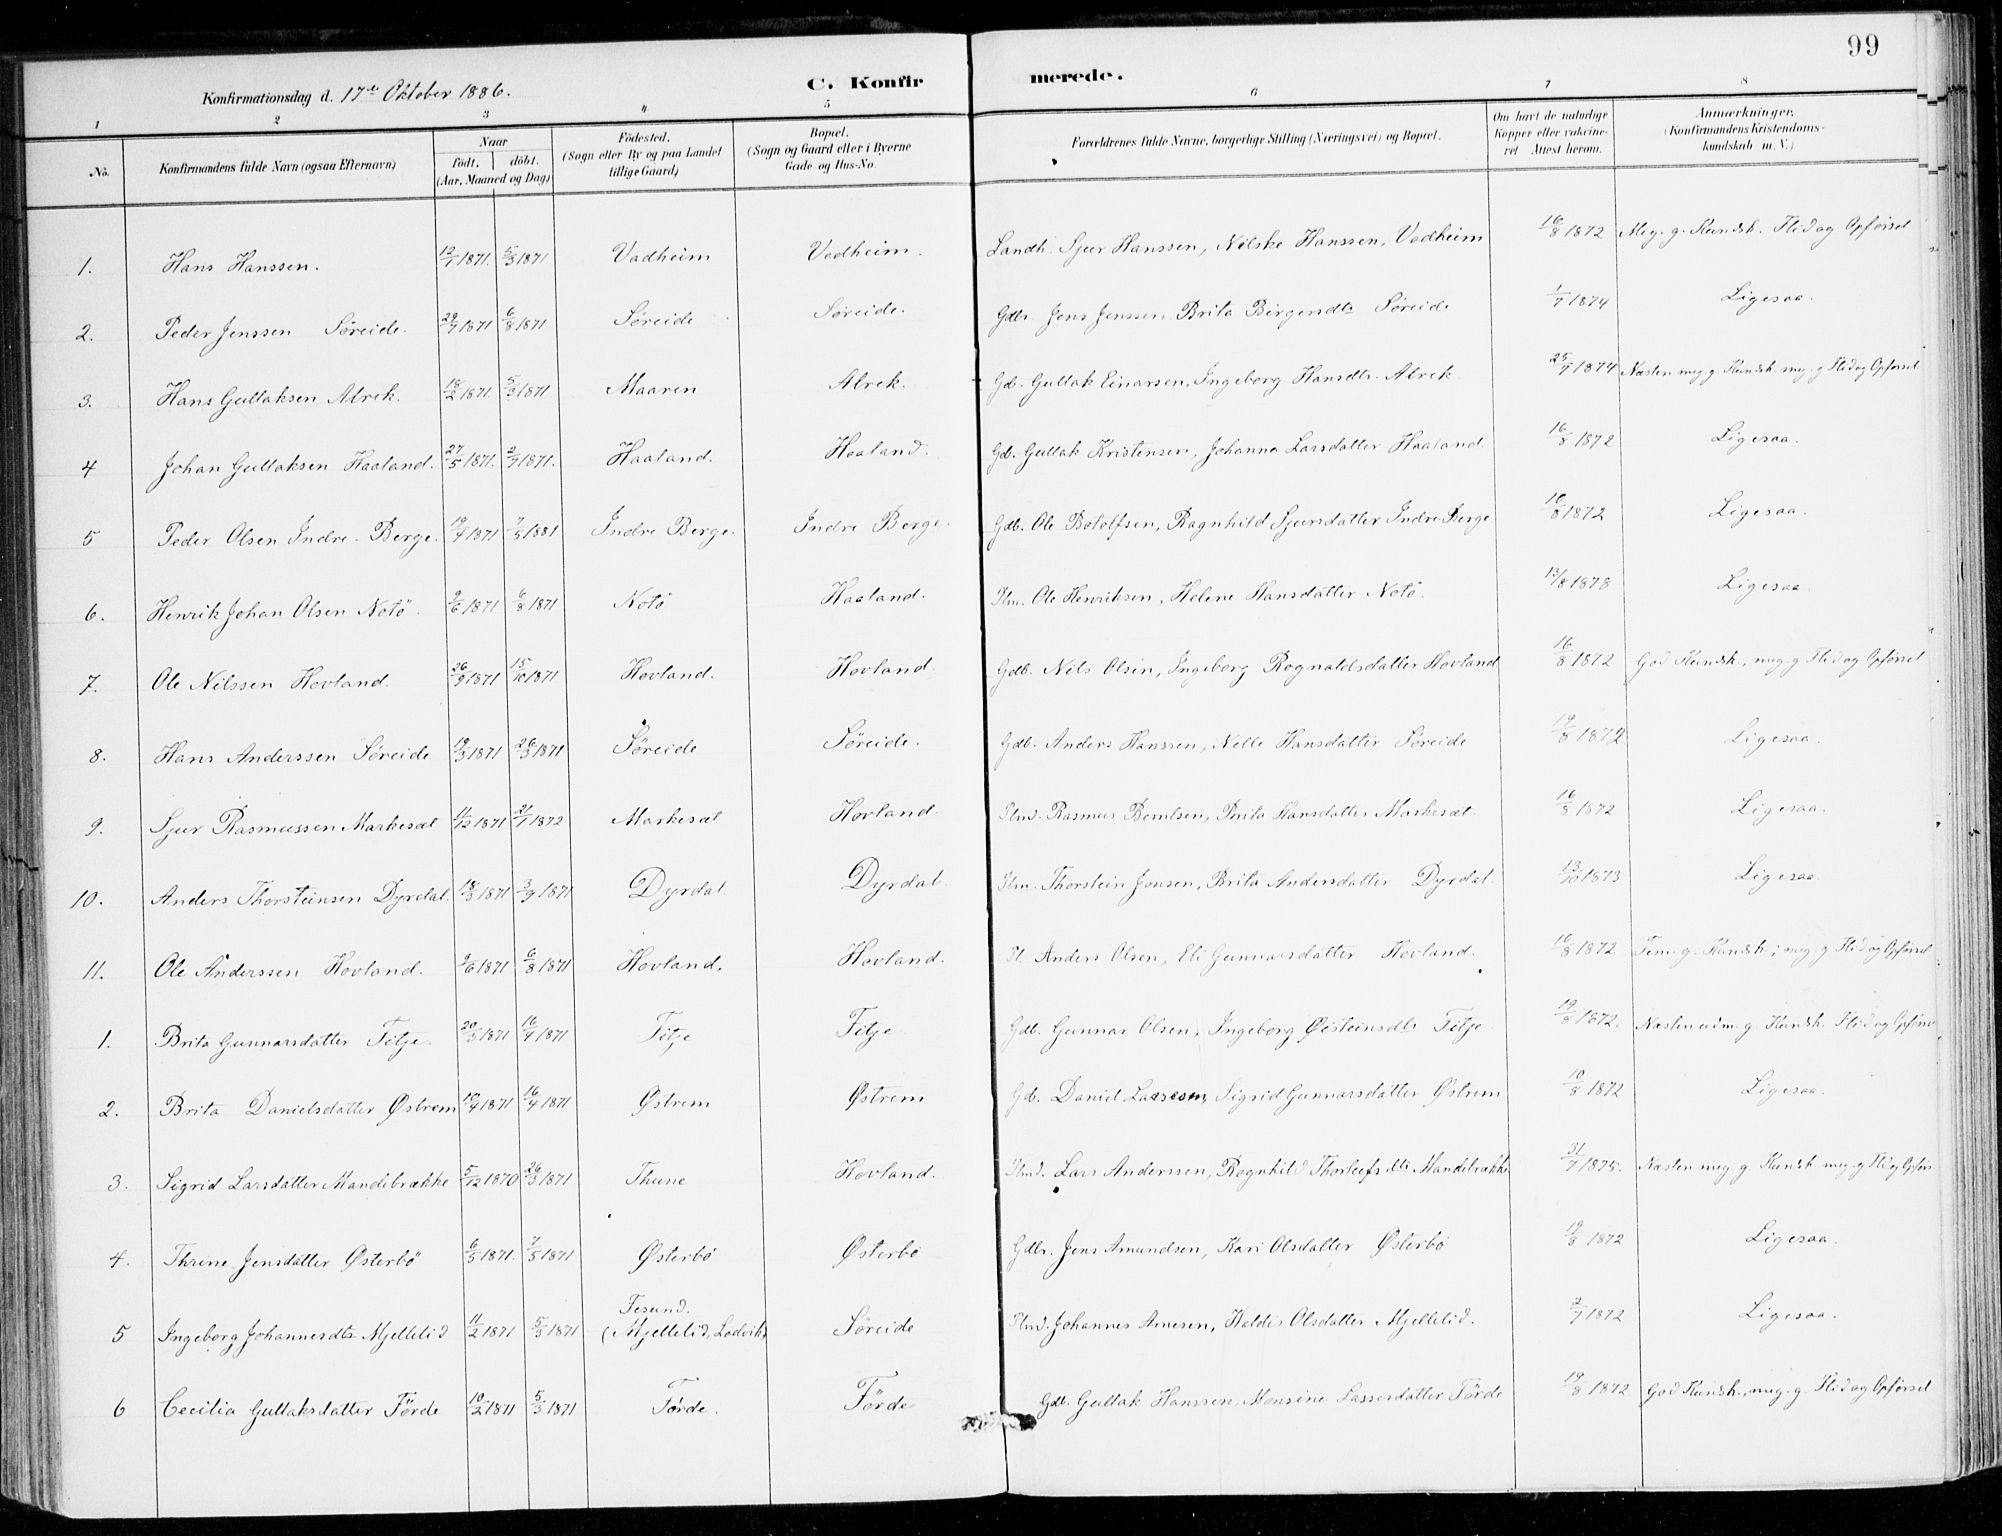 99
C. Konfirmerede.
Konfirmationsdag d. 17de Oktober 1886.
1 2 3 4 5 6 7 8
No. Konfirmandens fulde Navn (ogsaa Efternavn) Naar født. døbt. (Aar, Maaned og Dag) Födested. (Sogn eller By og paa Landet tillige Gaard) Bopæl. (Sogn og Gaard eller i Byerne Gade og Hus-No. Forældrenes fulde Navne, borgerlige Stilling (Næringsvei) og Bopæl. Om havt de naturlige Kopper eller vakcineret Attest herom. Anmærkninger. (Konfirmandens Kristendomskundskab m. V.)
1. Hans Hanssen. 12/1 1871. 5/3 1871 Vadheim Vadheim. Landh. Sjur Hanssen, Nilske Hanssen, Vadheim 16/8 1872 Meg. g. Kundsk. Flid og Opførsel
2. Peder Jenssen Söreide. 29/7 1871 6/8 1871 Söreide Söreide. Gdbr. Jens Jenssen Brita Birgersdtr Söreide 1/7 1874 Ligesaa.
3. Hans Gullaksen Alrek. 18/2 1871. 5/3 1871 Maaren Alrek. Gdb. Gullak Einarsen, Ingeborg Hansdtr. Alrek 25/7 1874 Næsten meg. g. Kundsk. meg. g Flid og Opførsel
4 Johan Gullaksen Haaland. 27/5 1871. 2/7 1871. Haaland. Haaland. Gdb. Gullak Kristensen, Johanna Larsdatter Haaland. 16/8 1872 Ligesaa.
5 Peder Olsen Indre-Berge. 19/4 1871 7/5 1881 Indre Berge. Indre Berge. Gdb. Ole Botolfsen, Ragnhild Sjursdatter Indre Berge 10/8 1872 Ligesaa.
6. Henrik Johan Olsen Notö. 9/6 1871 6/8 1871 Notö Haaland. Plm. Ole Henriksen, Helene Hansdatter Notö. 13/8 1878 Ligesaa.
7. Ole Nilssen Hovland. 26/9 1871 15/10 1871 Hovland. Hovland. Gdb. Nils Olsen, Ingeborg Rognaldsdatter Hovland 16/8 1872 God Kundsk., meg. g Flid og Opførsel
8. Hans Anderssen Söreide 19/3 1871 26/3 1871 Söreide Söreide. Gdb. Anders Hanssen, Nille Hansdatter Söreide 19/8 1872 Ligesaa.
9. Sjur Rasmussen Markesæt 11/12 1871 21/1 1872 Markesæt Hovland. Plmd. Rasmus Berntsen, Brita Hansdatter Markesæt. 16/8 1872 Ligesaa.
10. Anders Thorsteinsen Dyrdal. 1871 3/9 1871 Dyrdal. Dyrdal. Plm. Thorstein Jonsen, Brita Andersdatter Dyrdal. 13/10 1873 Ligesaa.
11. Ole Anderssen Hovland. 9/6 1871 6/8 1871 Hovland. Hovland. Pl. Anders Olsen, Eli Gunnarsdatter Hovland. 16/8 1872 Tem. g. Kundsk.; meg. g Flid og Opførsel
1. Brita Gunnarsdatter Fitje. 20/3 1871 16/4 1871 Fitje Fitje Gdb. Gunnar Olsen, Ingeborg Øisteinsdtr Fitje 19/8 1872. Næsten udm. g. Kundsk. Flid og Opførs
2. Brita Danielsdatter Østrem 10/4 1871 16/4 1871 Østrem Østrem Gdb. Daniel Lassesen, Sigrid Gunnarsdatter Østrem 10/8 1872 Ligesaa.
3. Sigrid Larsdatter Mandebrække 5/12 1870 26/3 1871 Thune Hovland. Plmd. Lars Anderssen, Ragnhild Thorleifsdtr Mandebrække 31/7 1875. Næsten meg. g. Kundsk. meg. g Flid og Opførs
4. Thrine Jensdatter Østerbö 6/3 1871. 7/5 1871 Østerbö Østerbö Gdbr. Jens Amundsen, Kari Olsdatter Østerbö 19/8 1872 Ligesaa.
5 Ingeborg Johannesdtr Mjellelid 11/2 1871 5/3 1871 Tesund. (Mjellelid, Ladvik) Söreide Plmd. Johannes Arnesen, Haldis Olsdatter Mjellelid. 2/7 1872 Ligesaa.
6 Cecilia Gullaksdatter Förde 10/2 1871 5/3 1871 Förde. Förde Gdb. Gullak Hanssen, Monsine Lassesdatter Förde 19/8 1872 God Kundsk., meg. g. Flid og Opførsel